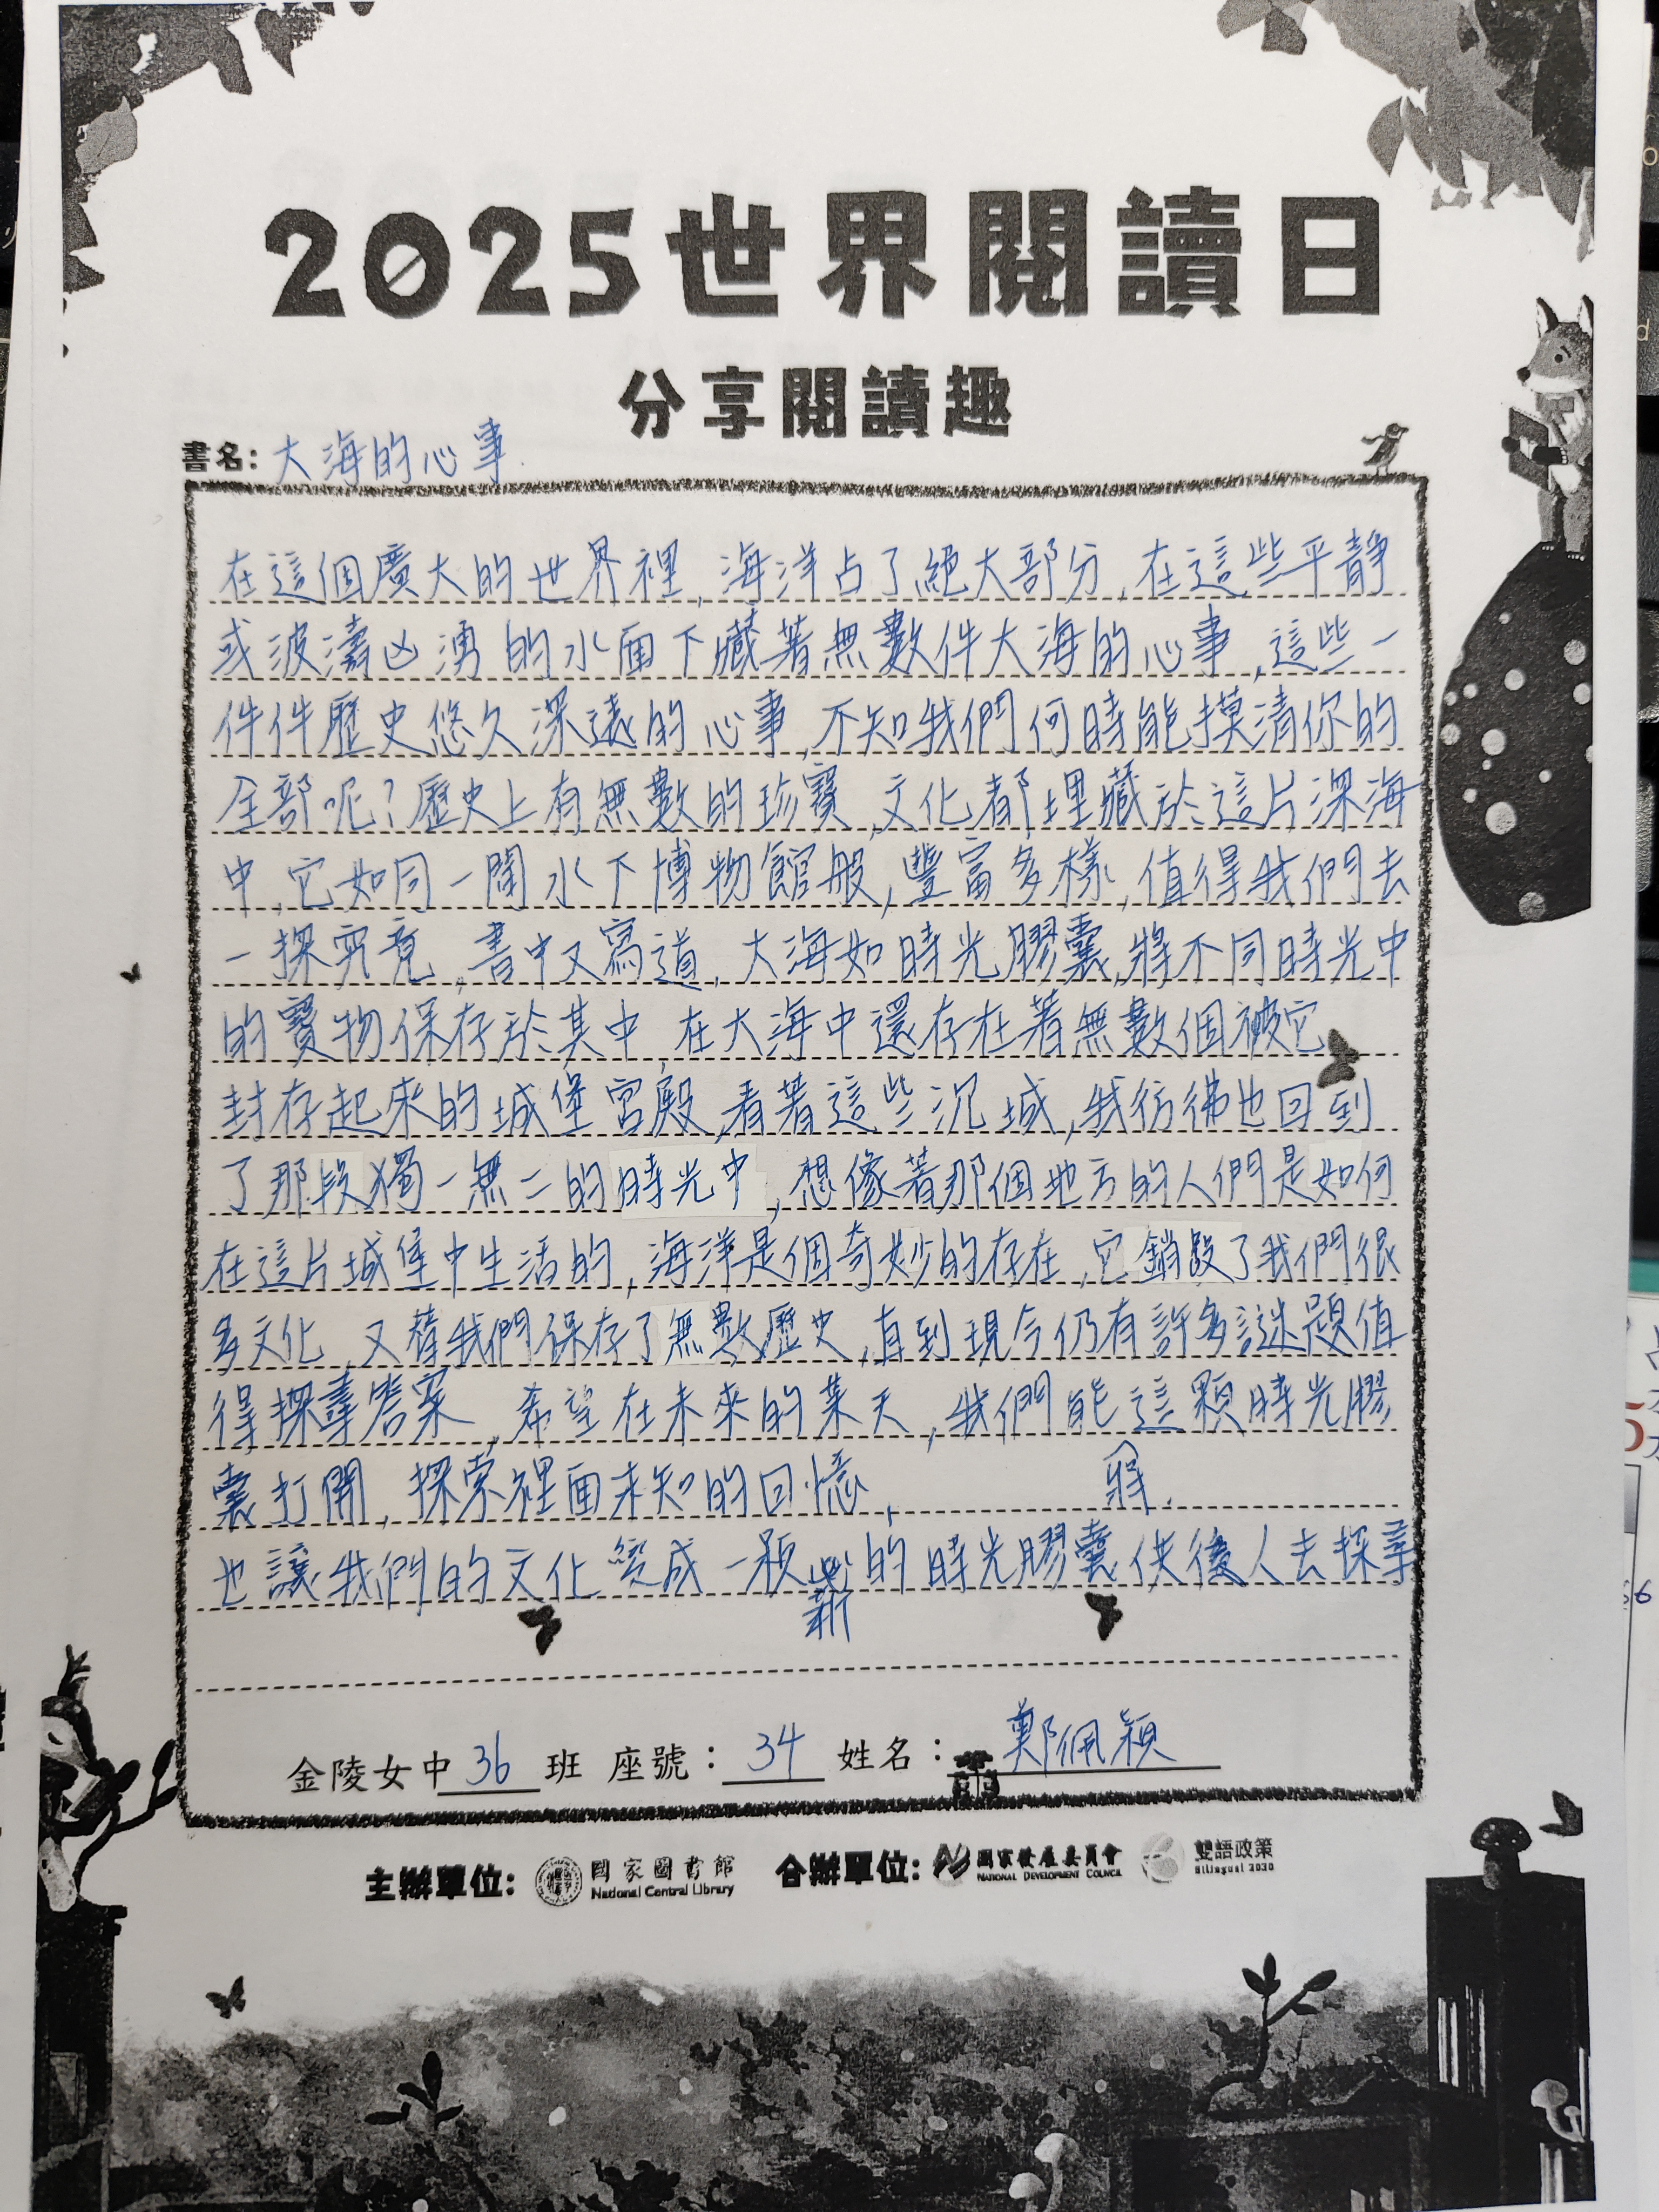 2025世界閱讀日
分享閱讀趣
書名：大海的心事
在這個廣大的世界裡,海洋占了絕大部分,在這些平靜
或波濤凶湧的水面下藏著無數件大海的心事,這些一
件件歷史悠久深遠的心事,不知我們何時能摸清你的
全部呢?歷史上有無數的珍寶,文化都埋藏於這片深海
中,它如同一間水下博物館般,豐富多樣,值得我們去
一探究竟,書中又寫道,大海如時光膠囊,將不同時光中
的寶物保存於其中,在大海中還存在著無數個被它
封存起來的城堡宮殿,看著這些沉城,我彷彿也回到
了那段獨一無二的時光中,想像著那個地方的人們是如何
在這片城堡中生活的,海洋是個奇妙的存在,它銷毀了我們很
多文化,又替我們保存了無數歷史,直到現今仍有許多謎題值
得探尋答案,希望在未來的某天,我們能這顆時光膠
囊打開,探索裡面未知的回憶,
也讓我們的文化變成一顆新的時光膠囊供後人去探尋
金陵女中 36 班 座號：34 姓名：鄭佩穎
主辦單位：國家圖書館 National Central Library 合辦單位：國家發展委員會 NATIONAL DEVELOPMENT COUNCIL 雙語政策 Bilingual 2030